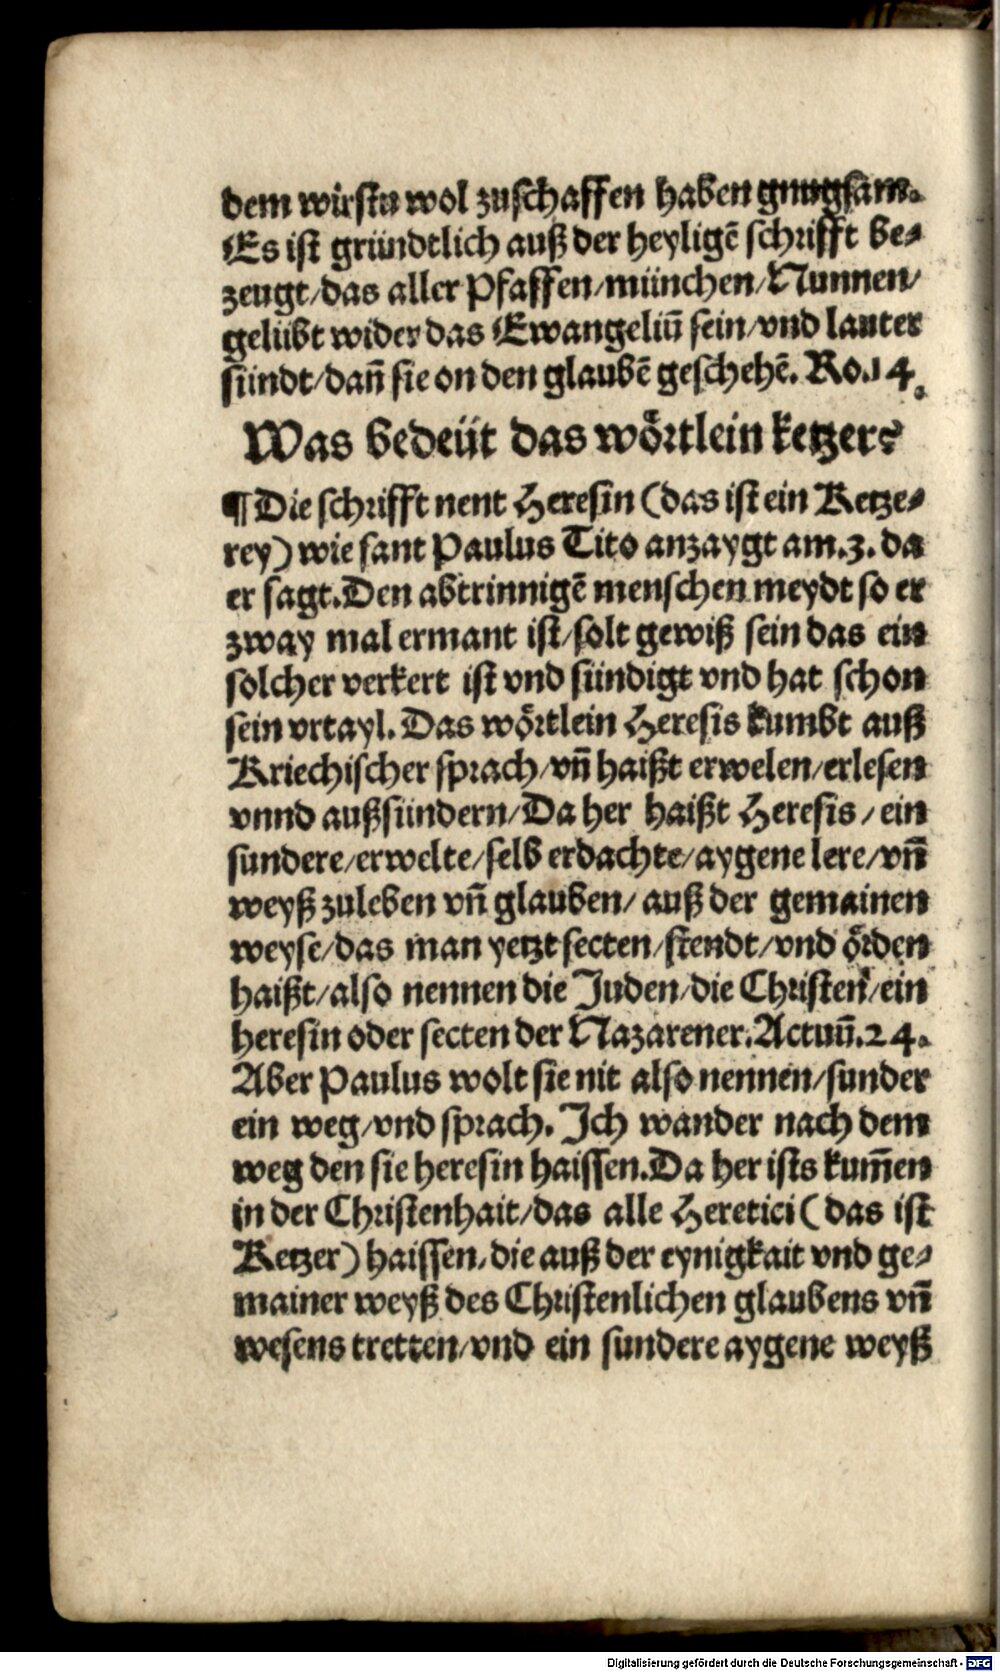 dem wirstu wol zuschaffen haben gnugsam.
Es ist gründtlich auß der heyligē schrifft be⸗
zeugt/das aller Pfaffen/münchen/Nunnen/
gelübt wider das Ewangeliū sein/vnd lauter
sündt/dañ sie on den glaubē geschehē. Ro.14.
Was bedeüt das wörtlein ketzer?
¶Die schrifft nent Heresin (das ist ein Ketze⸗
rey) wie sant Paulus Tito anzaygt am.3. da
er sagt.Den abtrinnigē menschen meydt so er
zway mal ermant ist/solt gewiß sein das ein
solcher verkert ist vnd sündigt vnd hat schon
sein vrtayl. Das wörtlein Heresis kumbt auß
Kriechischer sprach/vñ haißt erwelen/erlesen
vnnd außsündern/Da her haißt Heresis/ein
sundere/erwelte/selb erdachte/aygene lere/vñ
weyß zuleben vñ glauben/ auß der gemainen
weyse/das man yetzt secten/stendt/vnd örden
haißt/also nennen die Juden/die Christen/ein
heresin oder secten der Nazarener.Actuū.24.
Aber Paulus wolt sie nit also nennen/sunder
ein weg/vnd sprach. Jch wander nach dem
weg den sie heresin haissen.Da her ists kum̄en
in der Christenhait/das alle Heretici (das ist
Ketzer) haissen/die auß der eynigkait vnd ge⸗
mainer weyß des Christenlichen glaubens vñ
wesens tretten/vnd ein sundere aygene weyß
Digitalisierung gefördert durch die Deutsche Forschungsgemeinschaft - DFG